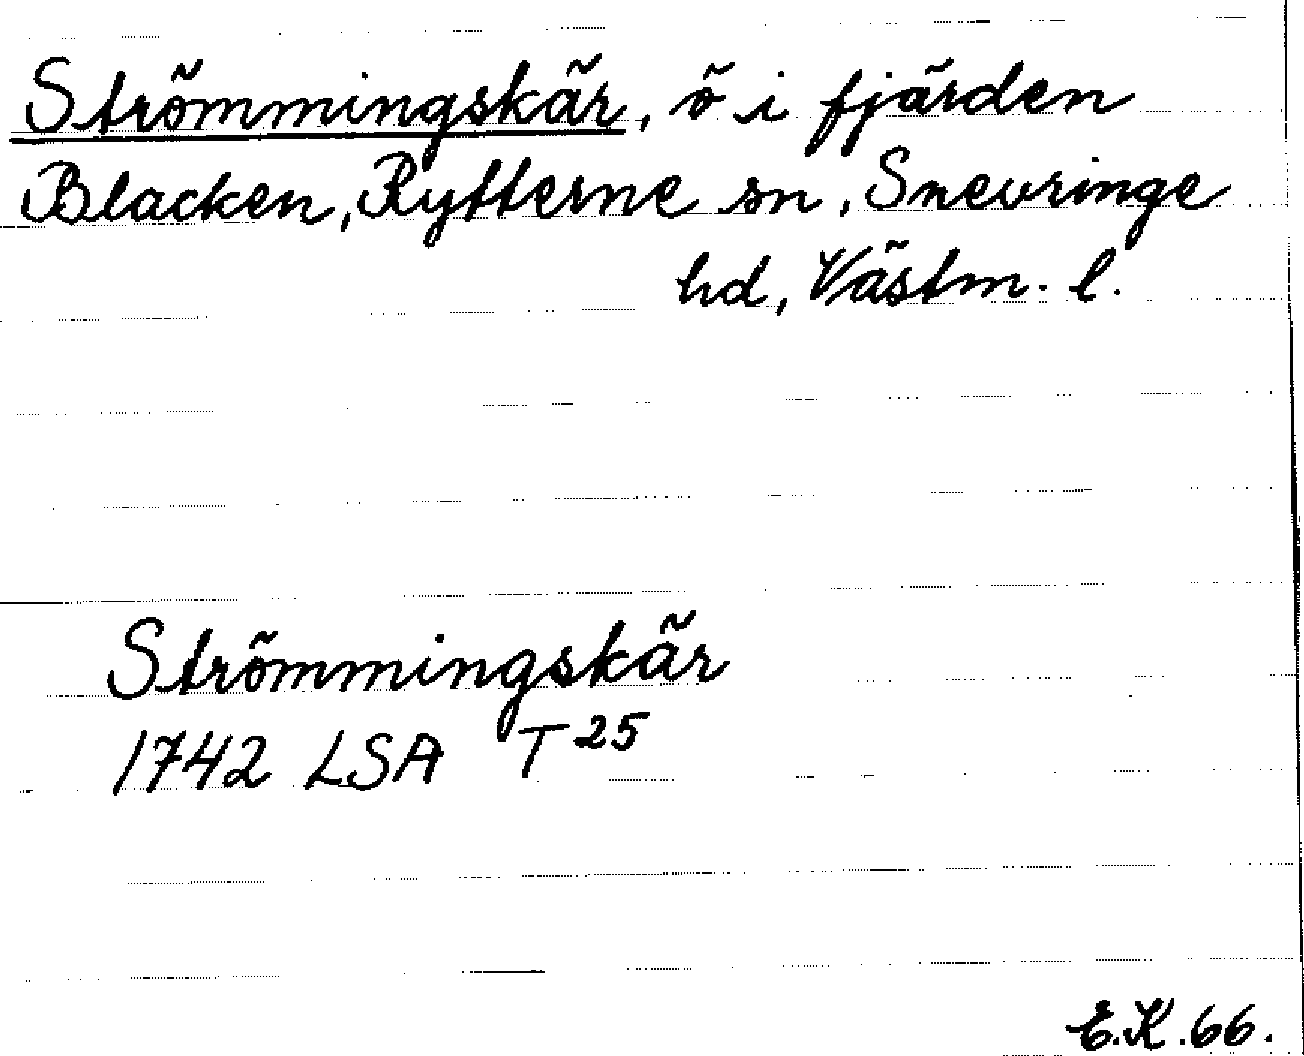 Strömmingskär, ö i fjärden
Blacken, Rytterne sn, Snevringe
hd, Västm. l.
Strömmingskär
1742 LSA T 25
E.K. 66.